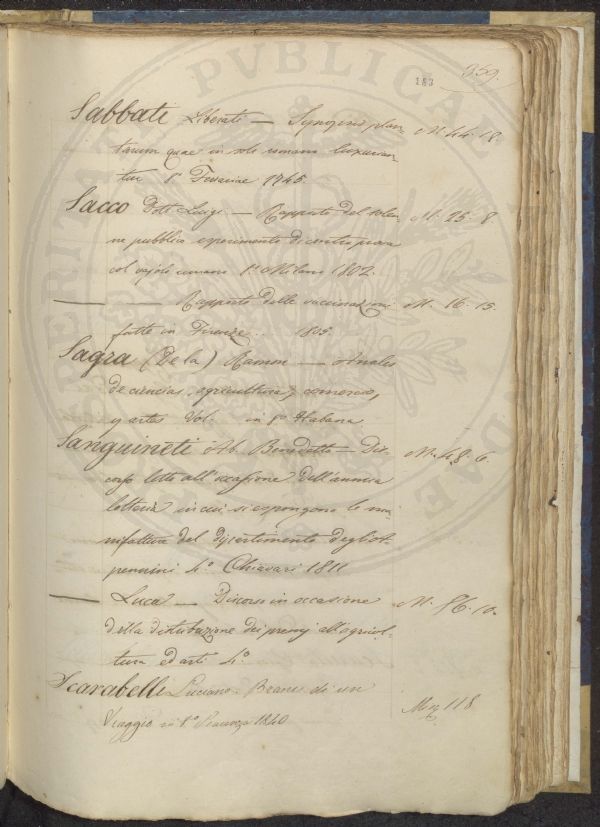 359.
183
Sabbati Liberati — Synopsis plan M. 44. 18.
tarum quae in solo romano luxurian
tur Ferrariae 1745.
Sacco Dott. Luigi — Rapporto del solen M. 25. 8.
ne pubblico esperimento di contropprova
col vajolo umano Milano 1802.
— — Rapporto delle vaccinazioni M. 16. 15.
fatte in Firenze. 1805.
Sagra (De la) Ramon — Anales
de ciencias, agricultura, comercio,
y artes Vol. in 8° Habana
Sanguineti Ab. Benedetto — Dis. M. 48. 6.
corso letto all'occasione dell'annua
lotteria in cui si espongono le ma
nifatture del dipartimento degli Ap
pennini 4.° Chiavari 1811
— Luca — Discorso in occasione M. 56. 10.
della distribuzione dei premj all'agricol-
tura ed arti 4.°
Scarabelli Luciano - Brani di un
Viaggio in 8° Piacenza 1840 118
PERITATI PVBLICAE